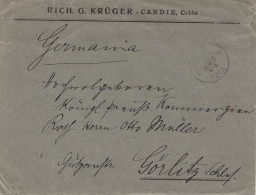 RICH. G. KRÜGER - CANDIE, Crète
Germania
Hochwolgeboren
Königl. Preuß. Kommerzien
Rath Herrn Otto Müller
Görlitz Schles.